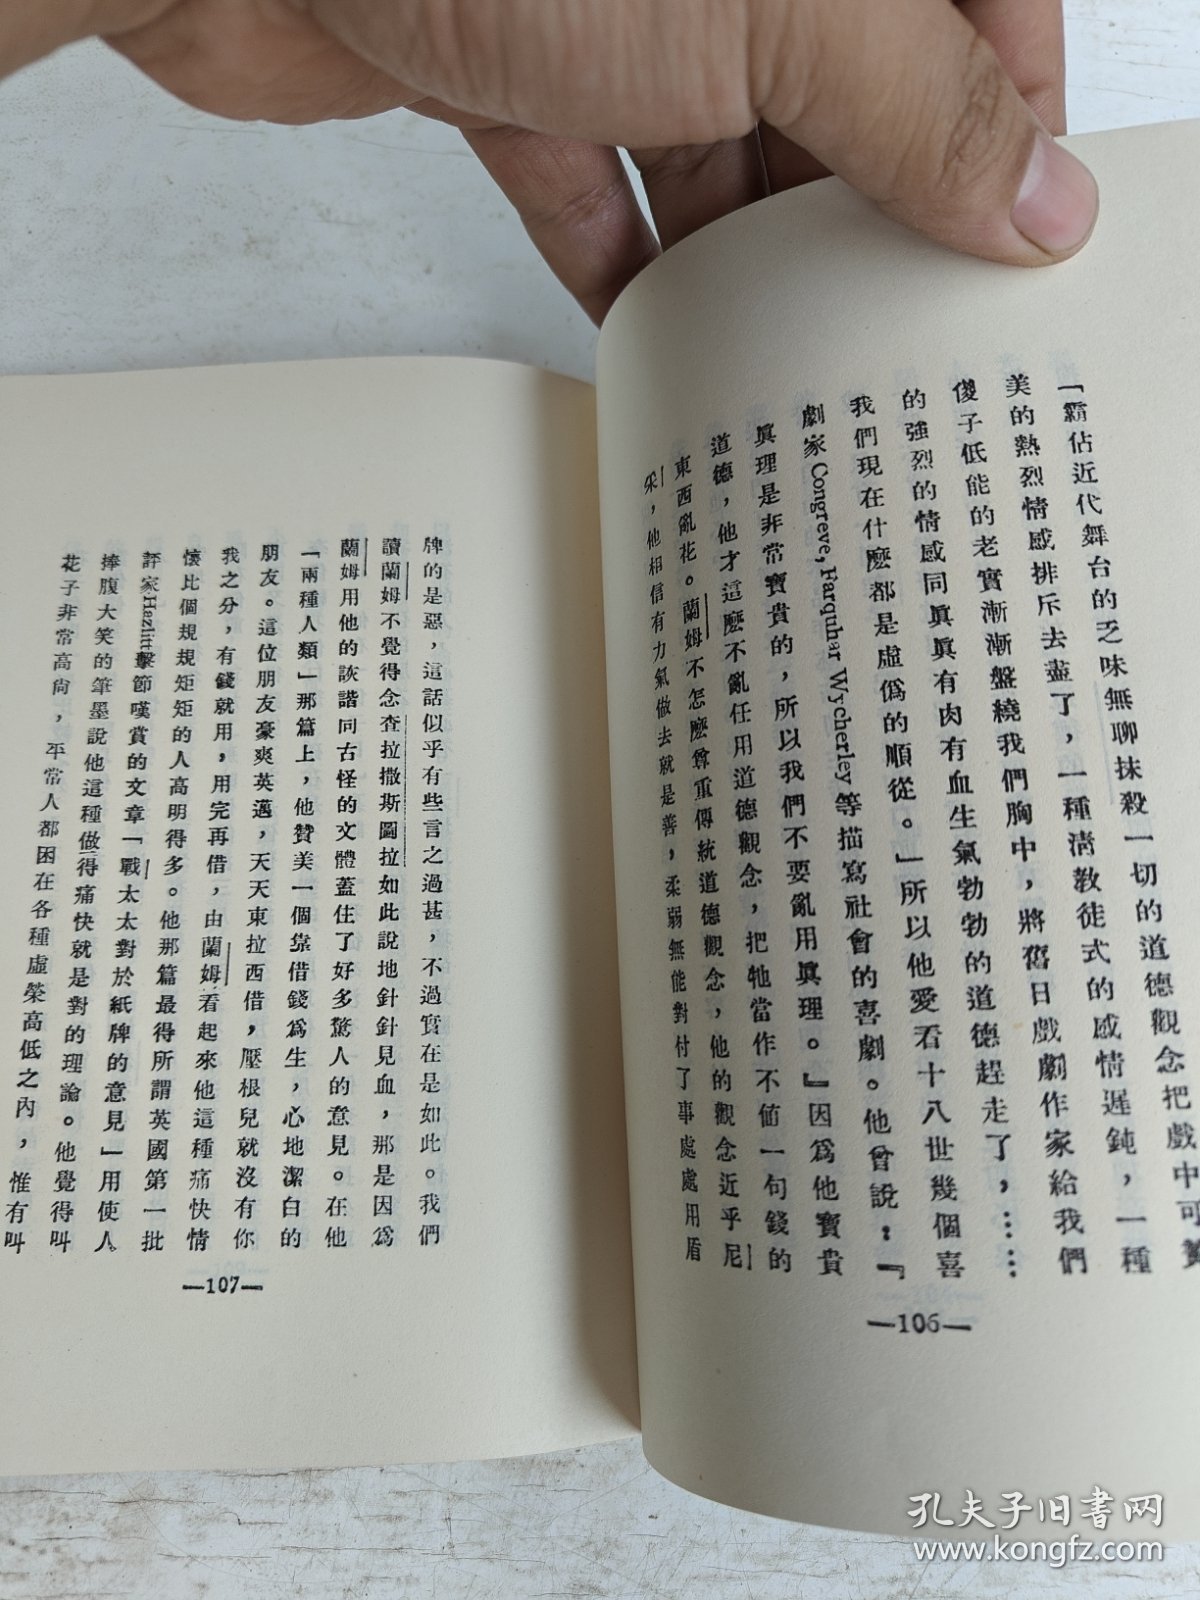 「霸佔近代舞台的乏味無聊抹殺一切的道德觀念把戲中可贊
美的熱烈情感排斥去盡了，一種清教徒式的感情遲鈍，一種
傻子低能的老實漸漸盤繞我們胸中，將舊日戲劇作家給我們
的強烈的情感同真真有肉有血生氣勃勃的道德趕走了，……
我們現在什麽都是虛僞的順從。」所以他愛看十八世幾個喜
劇家Congreve, Farquhar Wycherley等描寫社會的喜劇。他曾說：『
真理是非常寶貴的，所以我們不要亂用真理。』因爲他寶貴
道德，他才這麽不亂任用道德觀念，把牠當作不值一句錢的
東西亂花。蘭姆不怎麽尊重傳統道德觀念，他的觀念近乎尼
采，他相信有力氣做去就是善，柔弱無能對付了事處處用盾
—106—
牌的是惡，這話似乎有些言之過甚，不過實在是如此。我們
讀蘭姆不覺得念查拉撒斯圖拉如此說地針針見血，那是因爲
蘭姆用他的詼諧同古怪的文體蓋住了好多驚人的意見。在他
「兩種人類」那篇上，他贊美一個靠借錢爲生，心地潔白的
朋友。這位朋友豪爽英邁，天天東拉西借，壓根兒就沒有你
我之分，有錢就用，用完再借，由蘭姆看起來他這種痛快情
懷比個規規矩矩的人高明得多。他那篇最得所謂英國第一批
評家Hazlitt擊節嘆賞的文章「戰太太對於紙牌的意見」用使人
捧腹大笑的筆墨說他這種做得痛快就是對的理論。他覺得叫
花子非常高尙，平常人都困在各種虛榮高低之內，惟有叫
—107—
孔夫子旧书网
www.kongfz.com